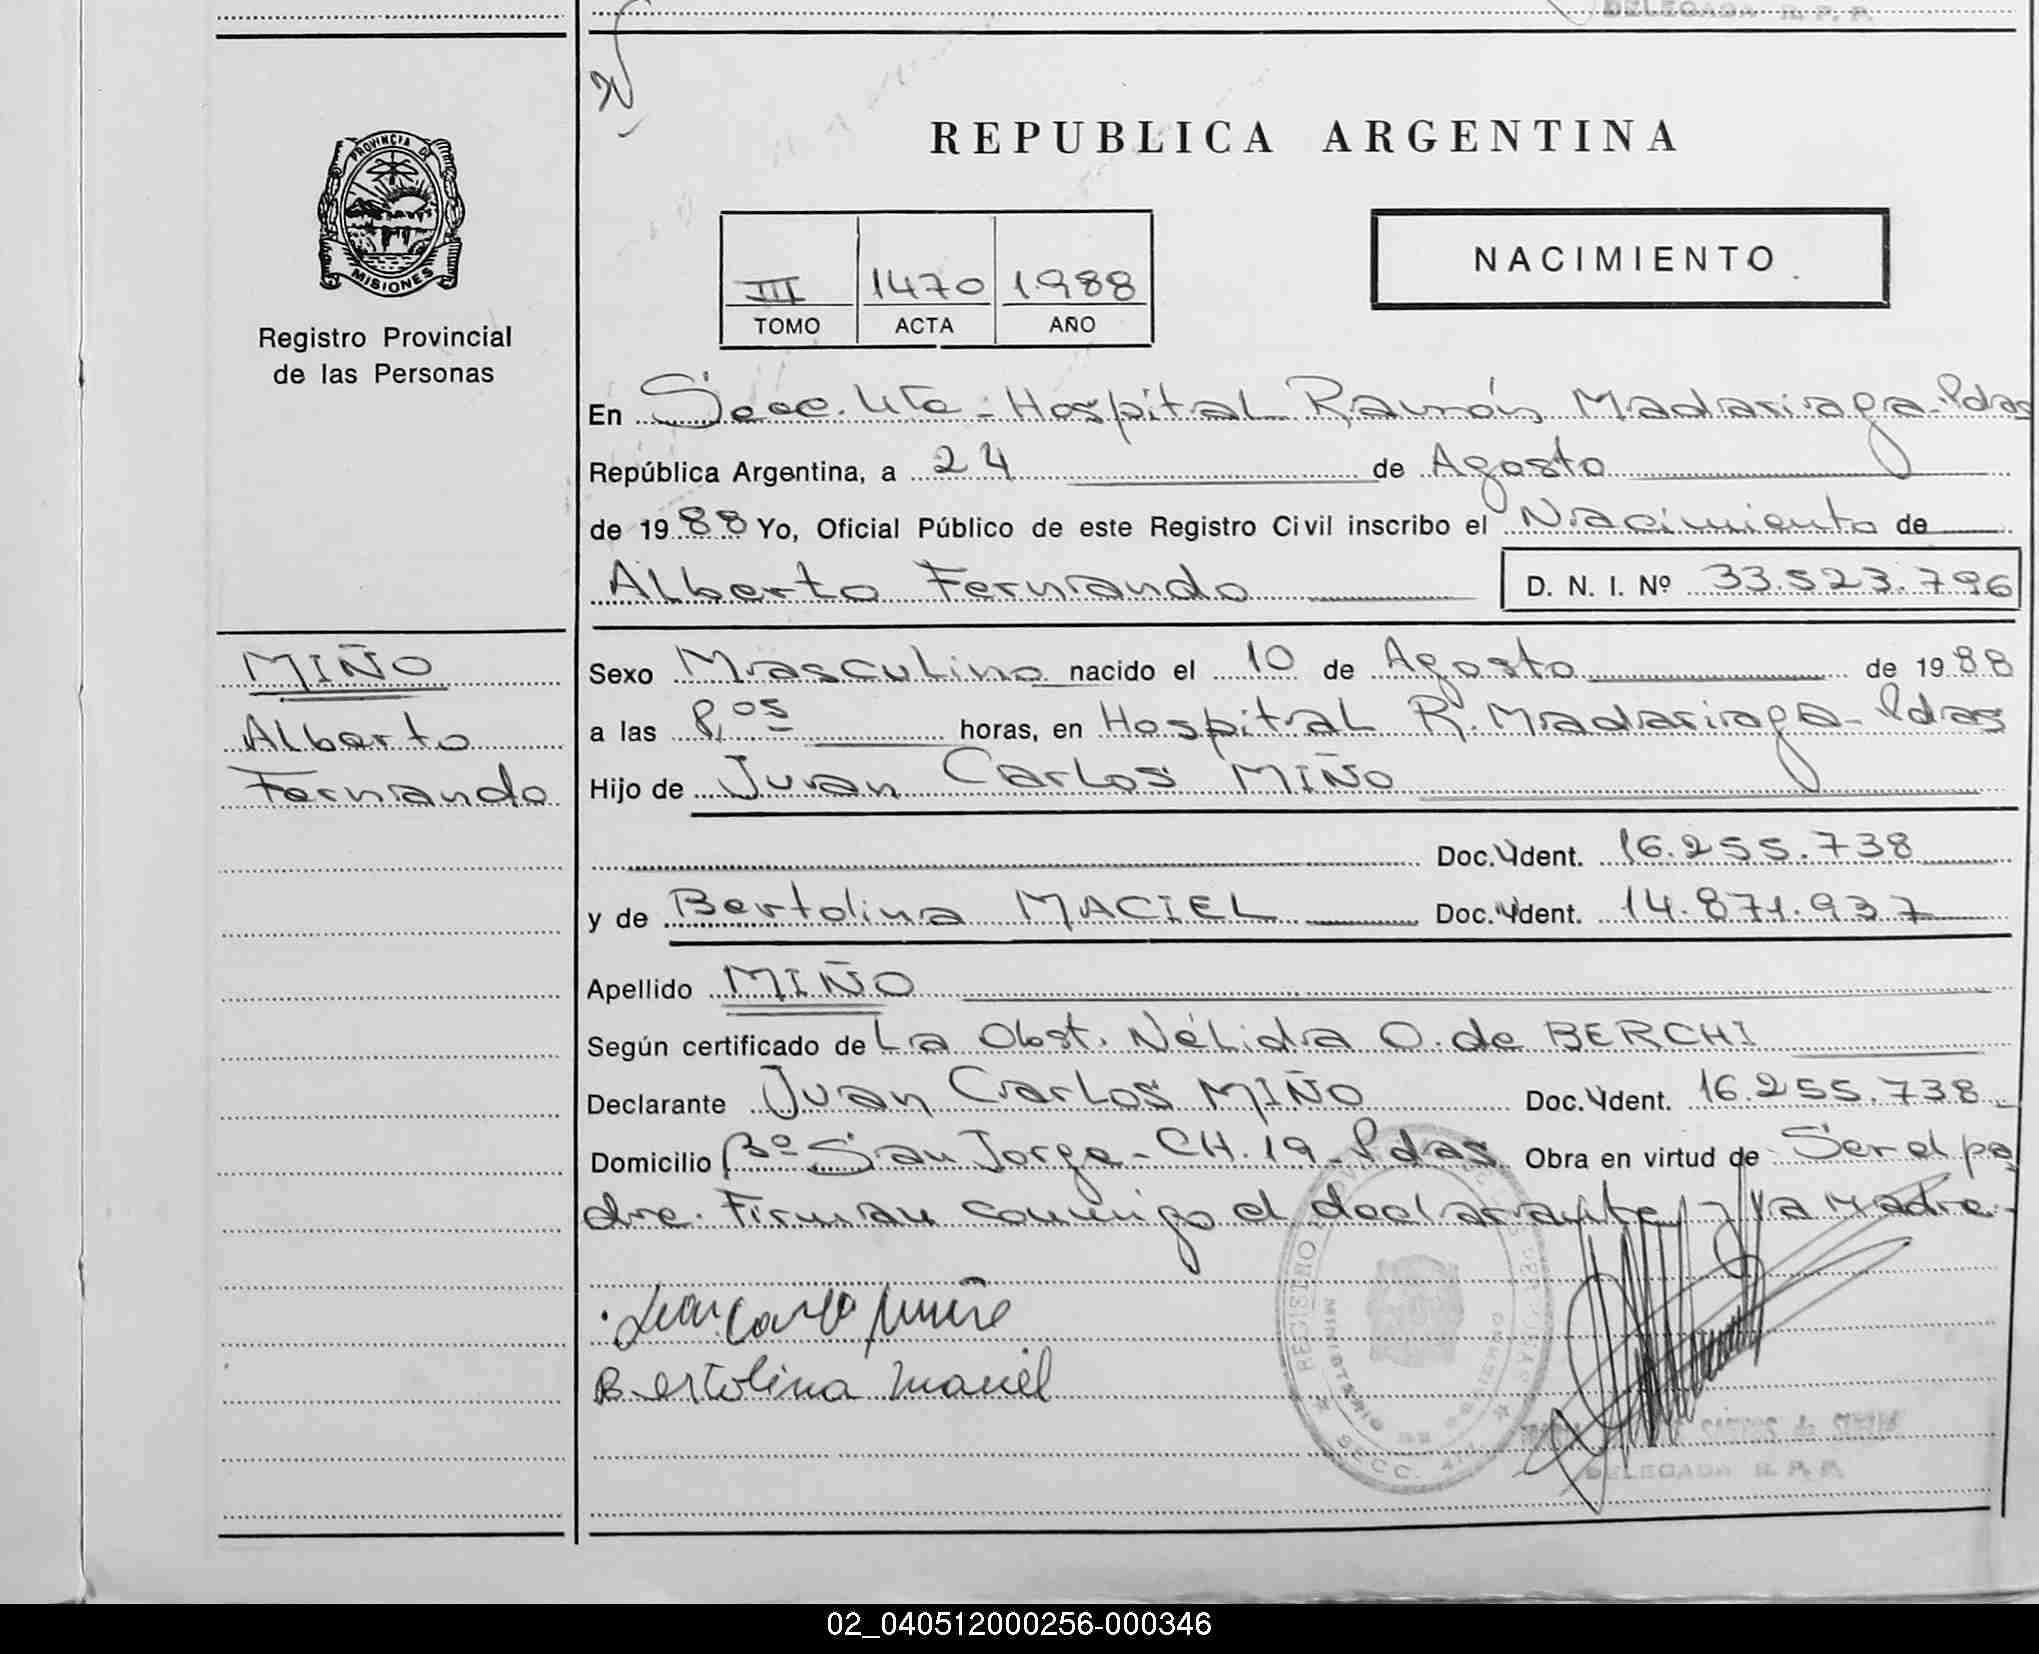 DELEGADA R. P. P.
PROVINCIA DE
MISIONES
Registro Provincial
de las Personas
REPUBLICA ARGENTINA
NACIMIENTO
III 1470 1988
TOMO ACTA AÑO
En Secc. 4ta - Hospital Ramón Madariaga - Pdas
República Argentina, a 24 de Agosto
de 1988 Yo, Oficial Público de este Registro Civil inscribo el Nacimiento de
Alberto Fernando D. N. I. Nº 33.523.796
MIÑO
Alberto
Fernando
Sexo Masculino nacido el 10 de Agosto de 1988
a las 8,05 horas, en Hospital R. Madariaga - Pdas
Hijo de Juan Carlos MIÑO
Doc. Ident. 16.255.738
y de Bertolina MACIEL Doc. Ident. 14.871.937
Apellido MIÑO
Según certificado de La Obst. Nélida O. de BERCHI
Declarante Juan Carlos MIÑO Doc. Ident. 16.255.738
Domicilio Bº San Jorge - CH. 19 - Pdas Obra en virtud de Ser el pa
dre. Firman conmigo el declarante y la Madre.-
Juan Carlo Miño
Bertolina Maciel
REGISTRO
MINISTERIO DE GOBIERNO
SECC.
DELEGADA R. P. P.
02_040512000256-000346